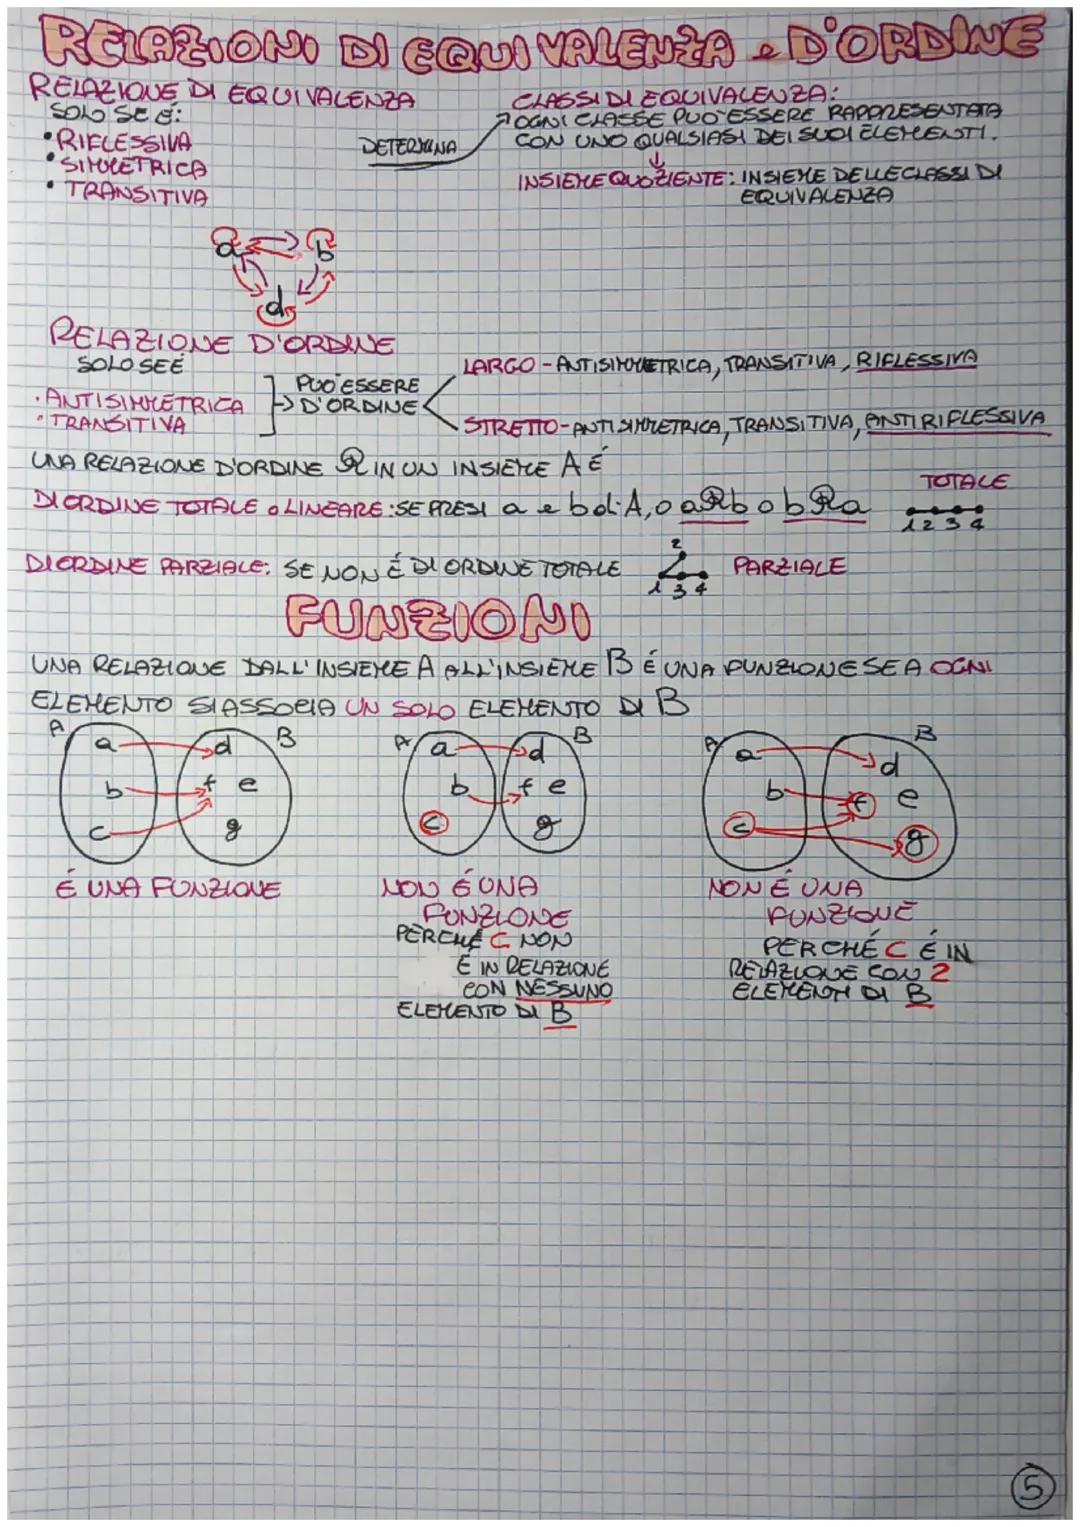 RELAZIONI DI EQUIVALENZA e D'ORDINE
RELAZIONE DI EQUIVALENZA
SOLO SE É:
• RIFLESSIVA
• SIMMETRICA
• TRANSITIVA
DETERMINA
CLASSI DI EQUIVALENZA:
OGNI CLASSE PUO' ESSERE RAPPRESENTATA
CON UNO QUALSIASI DEI SUOI ELEMENTI.
INSIEME QUOZIENTE: INSIEME DELLE CLASSI DI
EQUIVALENZA
a b
d
RELAZIONE D'ORDINE
SOLO SE É
• ANTISIMMETRICA
• TRANSITIVA
PUO' ESSERE
D'ORDINE
LARGO - ANTISIMMETRICA, TRANSITIVA, RIFLESSIVA
STRETTO - ANTISIMMETRICA, TRANSITIVA, ANTIRIFLESSIVA
UNA RELAZIONE D'ORDINE R IN UN INSIEME A É
DI ORDINE TOTALE o LINEARE: SE PRESI a e b di A, o aRb o bRa
TOTALE
1 2 3 4
DI ORDINE PARZIALE: SE NON É DI ORDINE TOTALE
2
1 3 4
PARZIALE
FUNZIONI
UNA RELAZIONE DALL'INSIEME A ALL'INSIEME B É UNA FUNZIONE SE A OGNI
ELEMENTO SI ASSOCIA UN SOLO ELEMENTO DI B
A B
a d
b f e
c g
É UNA FUNZIONE
A B
a d
b f e
c g
NON É UNA
FUNZIONE
PERCHÉ C NON
É IN RELAZIONE
CON NESSUNO
ELEMENTO DI B
A B
a d
b f e
c g
NON É UNA
FUNZIONE
PERCHÉ C É IN
RELAZIONE CON 2
ELEMENTI DI B
5